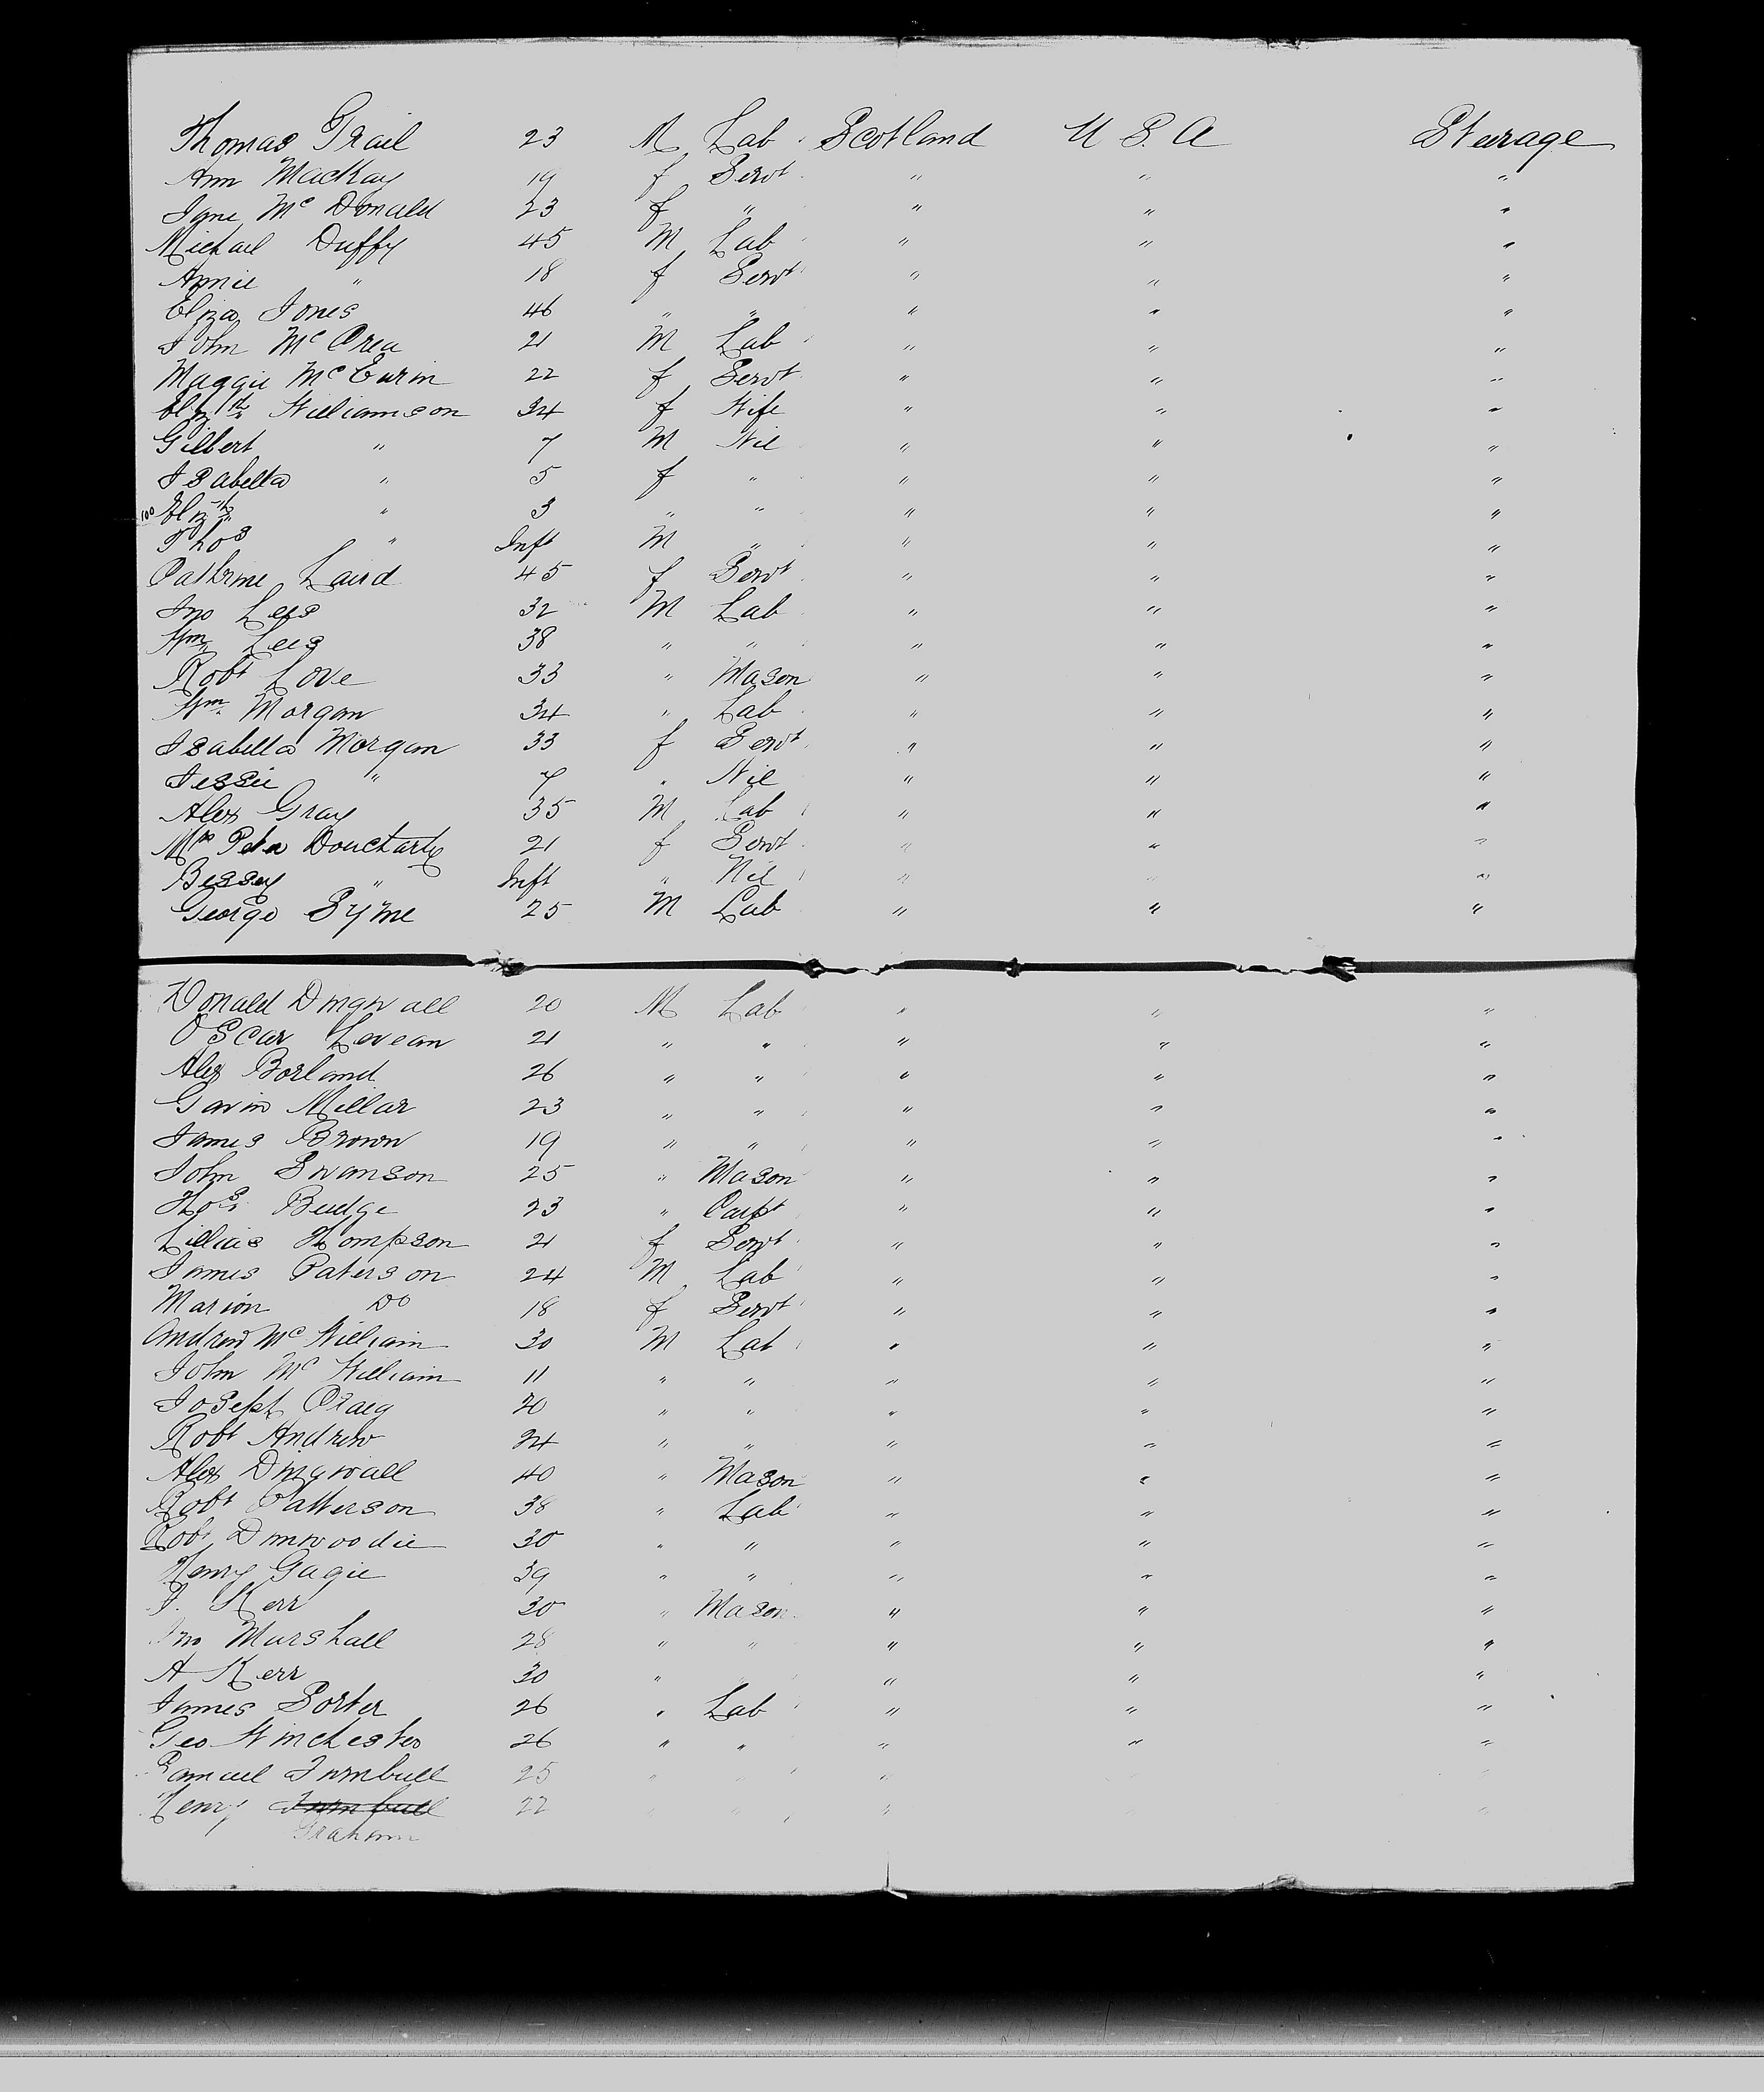 Thomas Trail 23 M Lab Scotland U S. A Steerage
Ann MacKay 19 f Servt " " "
Jane Mc Donald 23 f " " " "
Michael Duffy 45 M Lab " " "
Annie " 18 f Servt " " "
Eliza Jones 46 " " " " "
John Mc Crea 21 M Lab " " "
Maggie Mc Ewin 22 f Servt " " "
Elizth Williamson 34 f Wife " " "
Gilbert " 7 M Nil " " "
Isabella " 5 f " " " "
100 Elizth " 3 " " " " "
Thos " Inft M " " " "
Cathrine Laird 45 f Servt " " "
Jno Lees 32 M Lab " " "
Wm Lees 38 " " " " "
Robt Love 33 " Mason " " "
Wm Morgan 34 " Lab " " "
Isabella Morgan 33 f Servt " " "
Jessie " 7 " Nil " " "
Alex Gray 35 M Lab " " "
Mrs Peter Doucharty 21 f Servt " " "
Bessey " Inft " Nil " " "
George Syme 25 M Lab " " "
Donald Dingwall 20 M Lab " " "
Oscar Levean 21 " " " " "
Alex Borland 26 " " " " "
Gavin Millar 23 " " " " "
James Brown 19 " " " " "
John Swanson 25 " Mason " " "
Thos Budge 23 " Carpt " " "
Lillias Thompson 21 f Servt " " "
James Paterson 24 M Lab " " "
Marion Do 18 f Servt " " "
Andrew Mc William 30 M Lab " " "
John Mc William 11 " " " " "
Joseph Craig 20 " " " " "
Robt Andrew 24 " " " " "
Alex Dingwall 40 " Mason " " "
Robt Patterson 38 " Lab " " "
Robt Dinwoodie 30 " " " " "
Henry Gagie 39 " " " " "
J. Kerr 30 " Mason " " "
Jno Marshall 28 " " " " "
A Kerr 30 " " " "
James Porter 26 " Lab " " "
Geo Winchester 26 " " " " "
Samuel Turnbull 25 " " "
Henry Turnbull 22 " " " "
Graham